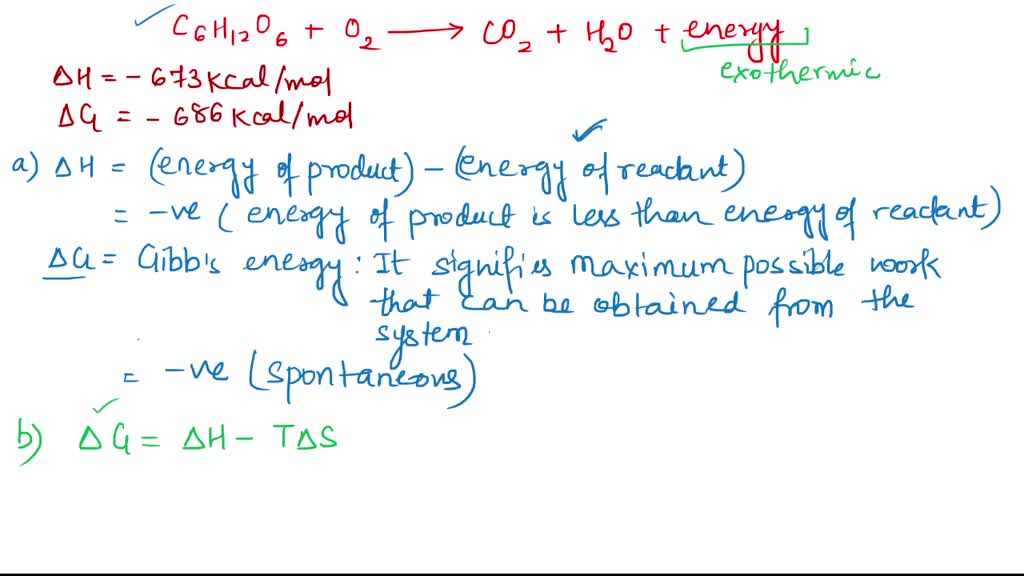 C6H12O6 + O2 → CO2 + H2O + energy
exothermic
ΔH = - 673 Kcal/mol
ΔG = - 686 Kcal/mol
a) ΔH = (energy of product) - (energy of reactant)
= -ve (energy of product is less than energy of reactant)
ΔG = Gibb's energy: It signifies maximum possible work
that can be obtained from the
system
= -ve (spontaneous)
b) ΔG = ΔH - TΔS